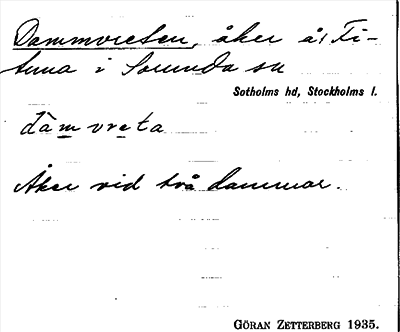 Dammvreten, åker å Fi-
tuna i Sorunda sn
Sotholms hd, Stockholms l.
dàm vreta
Åker vid två dammar.
GÖRAN ZETTERBERG 1935.